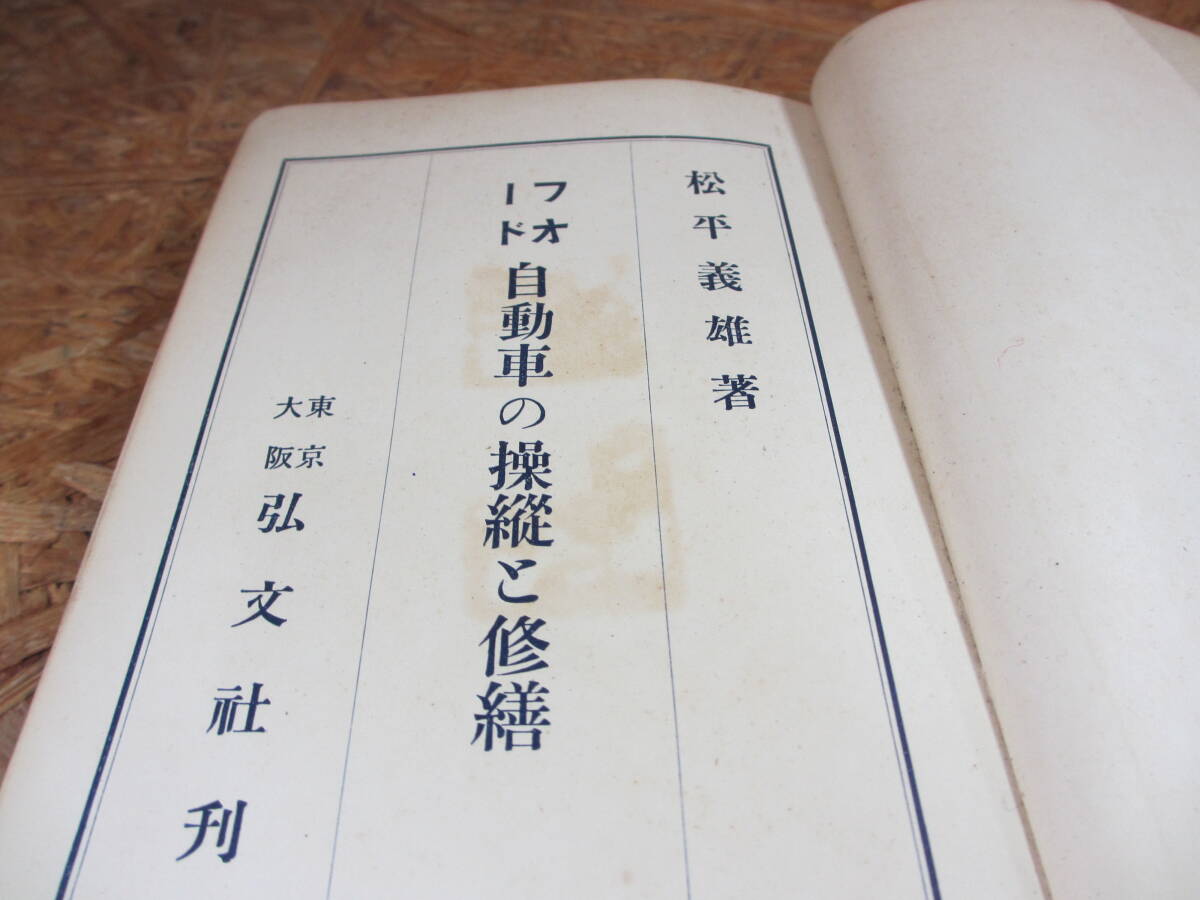 松平義雄著
フオード自動車の操縱と修繕
東京
大阪
弘文社刊